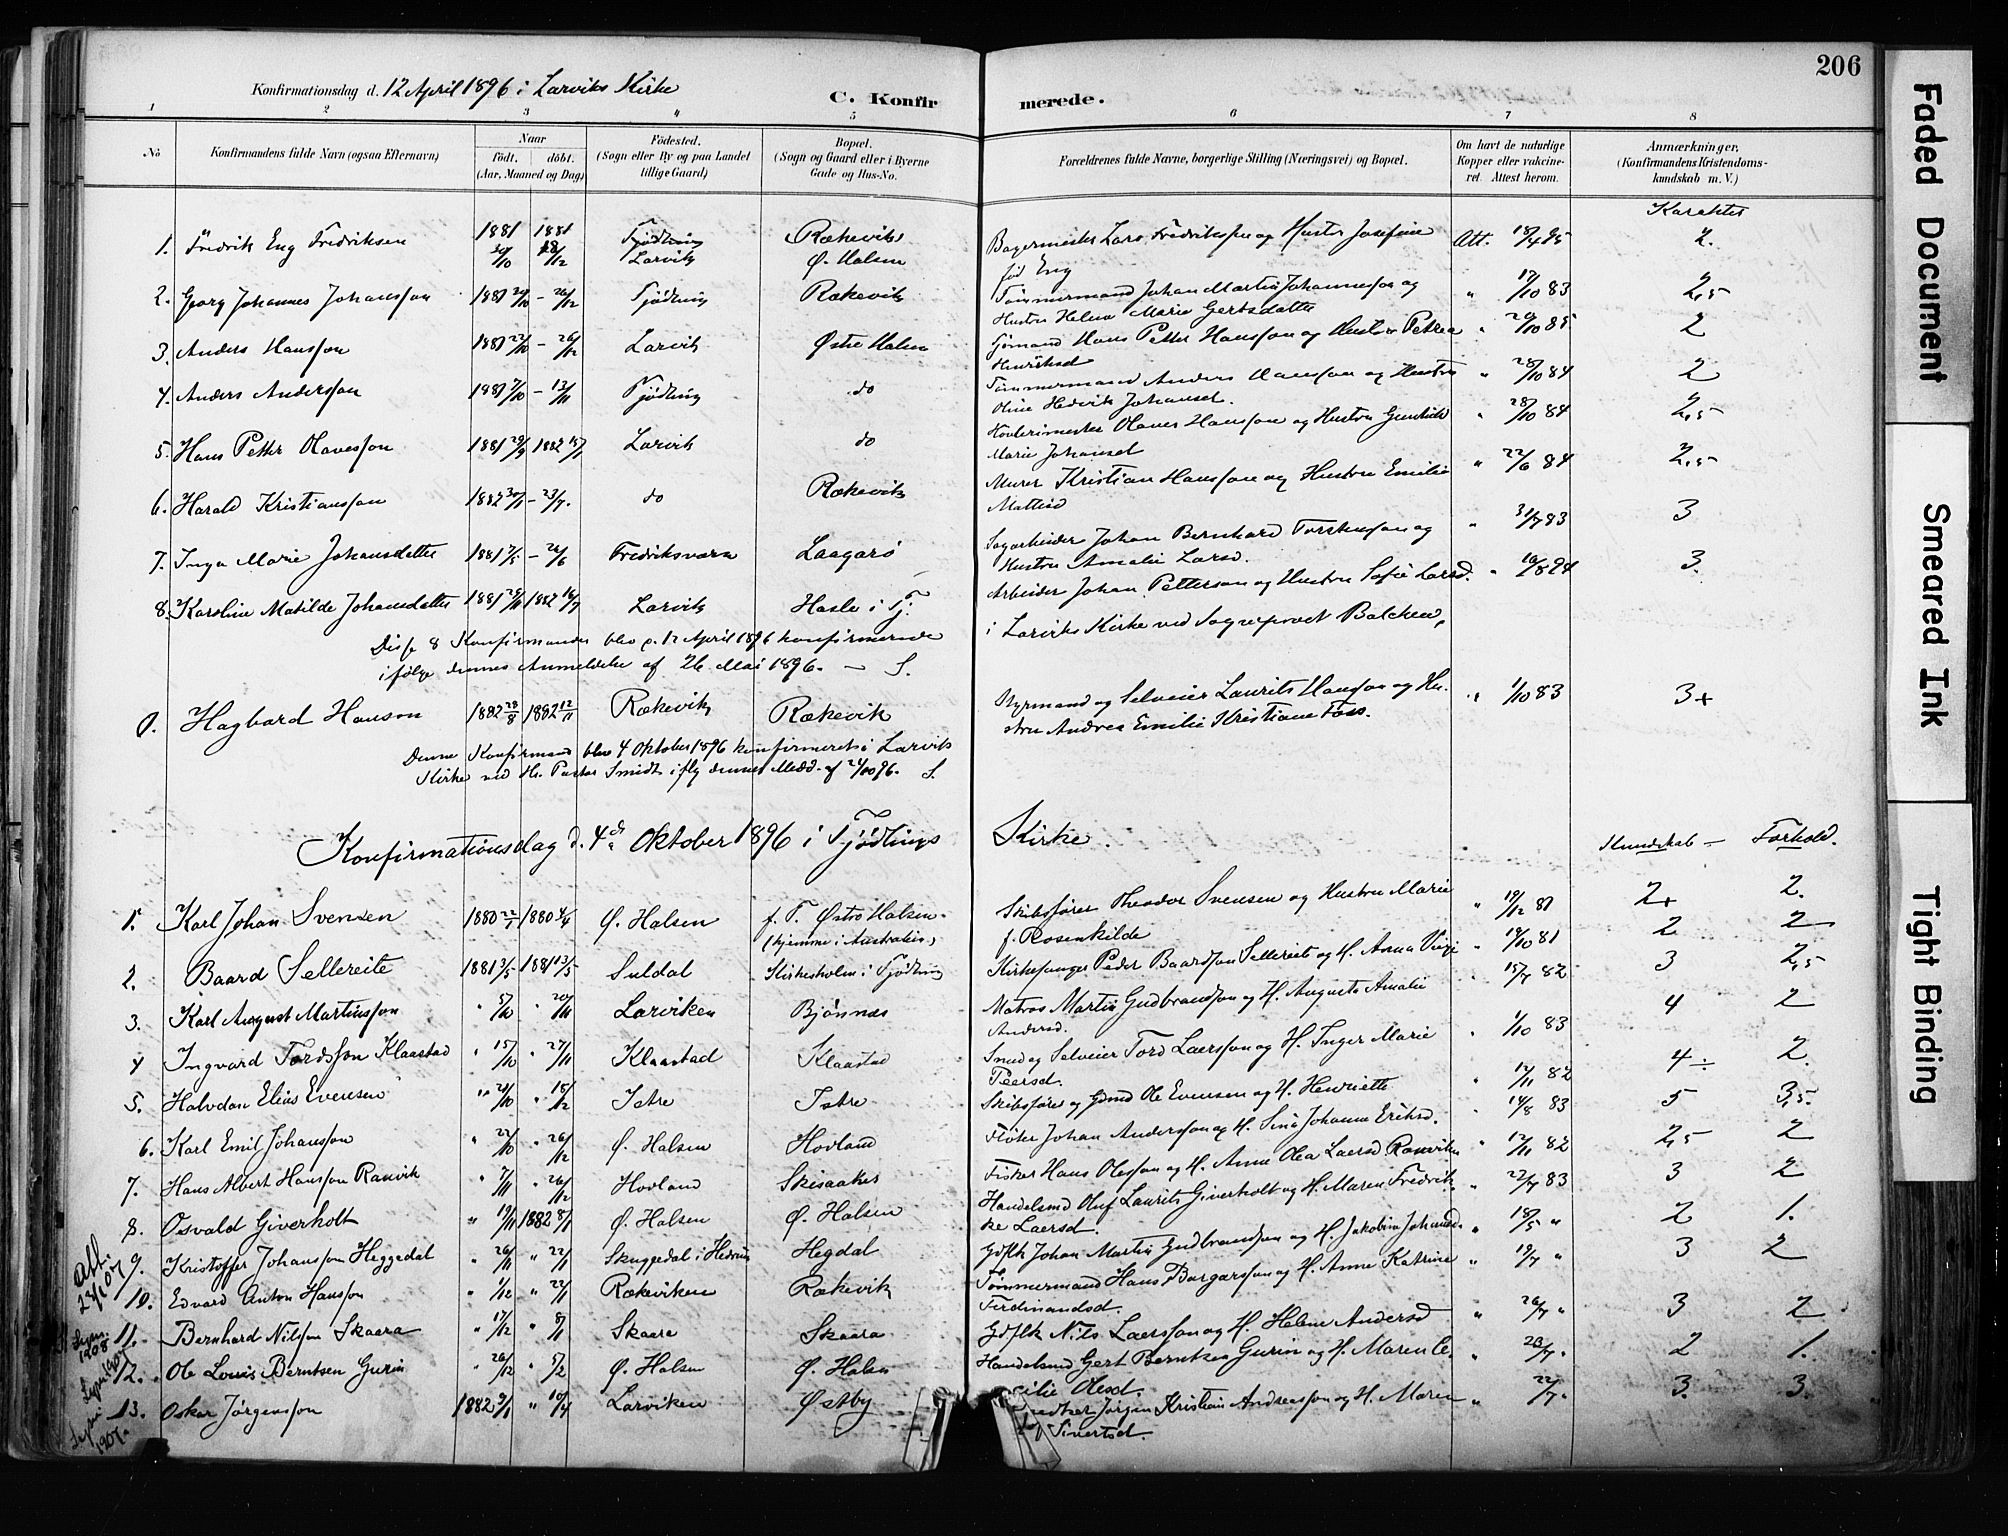 206
Konfirmationsdag d. 12 April 1896 i Larviks Kirke
C. Konfirmerede.
1 2 3 4 5 6 7 8
No
Konfirmandens fulde Navn (ogsaa Efternavn)
Naar
födt. döbt.
(Aar, Maaned og Dag)
Födested.
(Sogn eller By og paa Landet
tillige Gaard)
Bopæl.
(Sogn og Gaard eller i Byerne
Gade og Hus-No.
Forældrenes fulde Navne, borgerlige Stilling (Næringsvei) og Bopæl.
Om havt de naturlige
Kopper eller vakcine-
ret. Attest herom.
Anmærkninger.
(Konfirmandens Kristendoms-
kundskab m. V.)
Karakter
1. Fredrik Eng Fredriksen 1881 30/10 1881 18/12 Tjødling Larvik Rækevik Ø. Halsen Lars Fredriksen og Hustru Josefine Att. 18/4 95 2.
fød Eng
2. Georg Johannes Johansson 1881 - 26/12 Tjødling Rækevik Tømmermand Johan Martin Johannesson og " 17/10 83 2,5
Hustru Helene Marie Gertsdatter
3. Anders Hansson 1881 22/10 - 26/12 Larvik Østre Halsen Sjømand Hans Petter Hansson og Hustru Petrea " 20/10 85 2
Henriksd
4. Anders Andersson 1881 7/10 - 13/11 Tjødling do Tømmermand Anders Hansson og Hustru " 28/10 84 2
Oline Hedvik Johansd.
5. Hans Petter Olavesson 1881 29/9 1882 15/1 Larvik do Høvlerimester Olaves Hansson og Hustru Gunhild " 28/10 84 2,5
Marie Johansd
6. Harald Kristiansson 1882 30/1 - 23/7. do Rækevik Murer Kristian Hansson og Hustru Emilie " 22/6 84 2,5
Mattisd
7. Inga Marie Johansdatter 1881 7/5 - 26/6 Fredriksværn Laagarø Sagarbeider Johan Bernhard Torstensson og " 31/7 83 3
Hustru Amalie Larsd.
8. Karoline Matilde Johansdatter 1881 29/11 1882 16/7 Larvik Hasle i Tj. Arbeider Johan Pettersen og Hustru Sofie Larsd. " 10/8 94 3.
Disse 8 Konfirmander blev d. 12 April 1896 konfirmerede i Larviks Kirke ved Sogneprovst Balchen,
ifølge dennes Anmeldelse af 26 Mai 1896. — S.
Hagbard Hanson 1882 28/8 1882 12/11 Rækevik Rækevik Styrmand og Selveier Laurits Hansson og Hu- " 1/10 83 3+
stru Andrea Emilie Kristiane Foss.
Denne Konfirmand blev 4 Oktober 1896 konfirmeret i Larviks
Kirke ved Hr. Pastor Smidt iflg. dennes Medd. af 24/10 96. S.
Konfirmationsdag d. 4de Oktober 1896 i Tjødlings Kirke.
Kundskab — Forhold.
1. Karl Johan Svensen 1880 22/1 1880 4/4 Ø. Halsen f. T. Østre Halsen. Skibsfører Theodor Svensen og Hustru Marie " 19/12 81 2+ 2.
(hjemme i Australien) f. Rosenkilde
2. Baard Sellereite 1881 3/5 1881 13/5 Suldal Kirkesholm i Tjødling Kirkesanger Peder Baardson Sellereite og H. Anna Vigi " 19/10 81 2 2
3. Karl August Martinsson " 5/10 " 20/11 Larviken Bjønnes Matros Martin Gudbrandson og H. Augusta Amalie " 15/7 82 3 2,5
Andersd.
4 Ingvard Tordsson Klaastad " 15/10 " 27/11 Klaastad Klaastad Smed og Selveier Tord Laersson og H. Inger Marie " 1/10 83 4 2
Peersd.
5. Halvdan Elias Evensen " 21/10 " 18/12 Istre Istre Skibsfører og Gdmd Ole Evensen og H. Henriette " 12/11 82 4÷ 2
6. Karl Emil Johansson " 22/10 " 26/12 Ø. Halsen Hovland Fløter Johan Andersson og H. Sina Johanne Eriksd. " 14/8 83 5 3,5.
7. Hans Albert Hansson Ranvik " 7/11 " 26/12 Hovland Skisaaker Fisker Hans Olesson og H. Anne Olea Laersd Ranviken " 12/11 82 2,5 2
8. Osvald Giverholt " 19/11 1882 8/1 Ø. Halsen Ø. Halsen Handelsmd Oluf Laurits Giverholt og H. Maren Fredrik- " 22/7 83 3 2
ke Laersd.
9. Kristoffer Johansson Heggedal " 26/11 " 22/1 Skuggedal i Hedrum Hegdal Gdflk Johan Martin Gudbrandson og H. Jakobine Johansd. " 18/5 " 2 1.
10. Edvard Anton Hansson " 1/12 " 22/1 Rækeviken Rækevik Tømmermand Hans Borgersson og H. Anne Katrine " 19/7 " 3 2
Ferdinandsd.
11. Bernhard Nilsson Skaara " 17/12 " 8/1 Skaara Skaara Gdflk Nils Laersson og H. Helene Andersd " 26/7 " 3 2
12. Ole Louis Berntsen Gurin " 26/12 " 5/2 Ø. Halsen Ø. Halsen Handelsmd Gert Berntsen Gurin og H. Maren Ce- " 2 1.
cilie Olesd.
13. Oskar Jørgensson 1882 9/1 " 10/4 Larviken Østby Jørgen Kristian Andreasson og H. Maren " 22/7 " 3. 3.
Sivertsd.
Att.
1908
1907.
Faded Document
Smeared Ink
Tight Binding